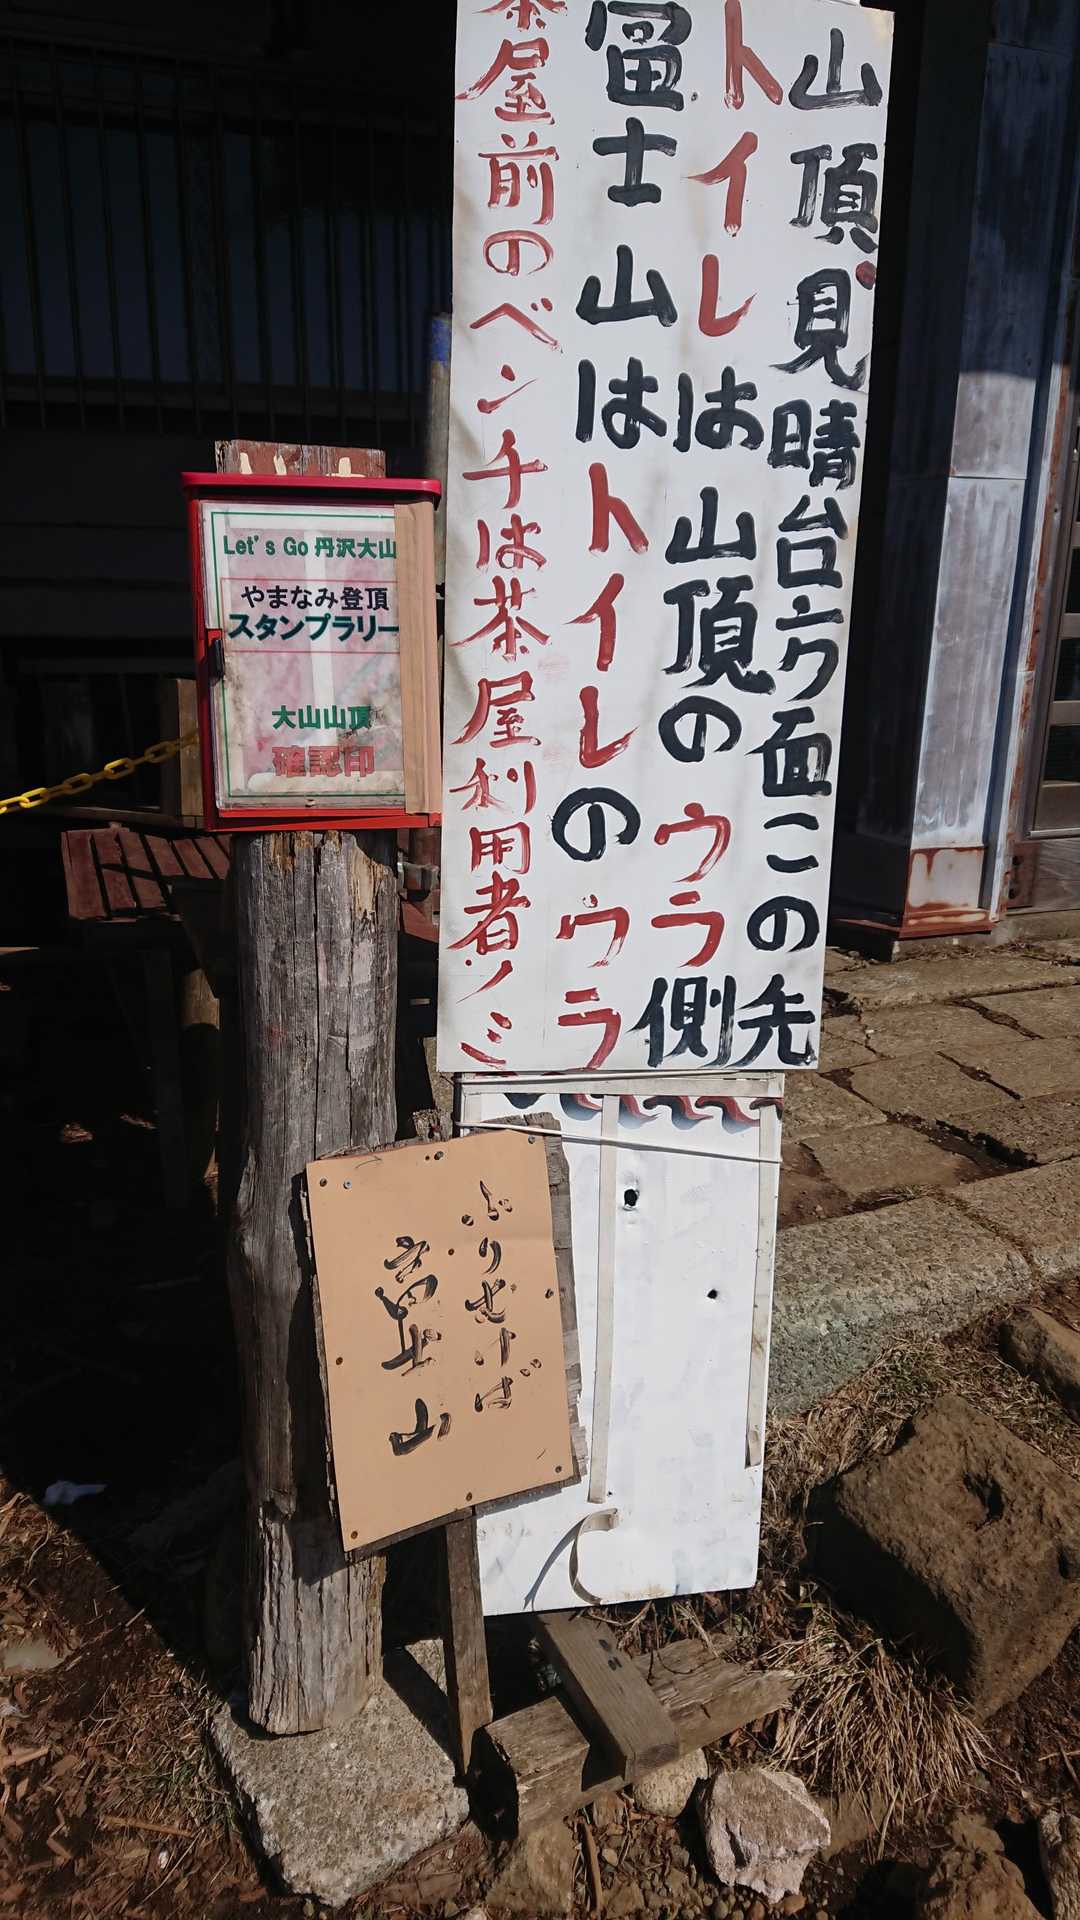 山頂見晴台方面この先
トイレは山頂のウラ側
富士山はトイレのウラ
茶屋前のベンチは茶屋利用者ノミ
Let's Go 丹沢大山
やまなみ登頂
スタンプラリー
大山山頂
確認印
ふりむけば
富士山